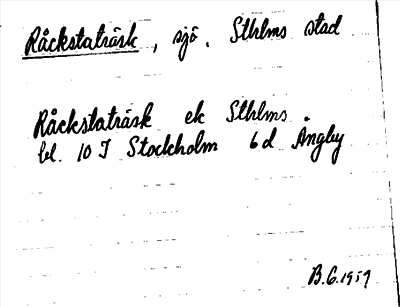 Råckstaträsk, sjö. Sthlms stad
Råckstaträsk ek Sthlms
bl. 10 I Stockholm 6d Ängby
B.G. 1959